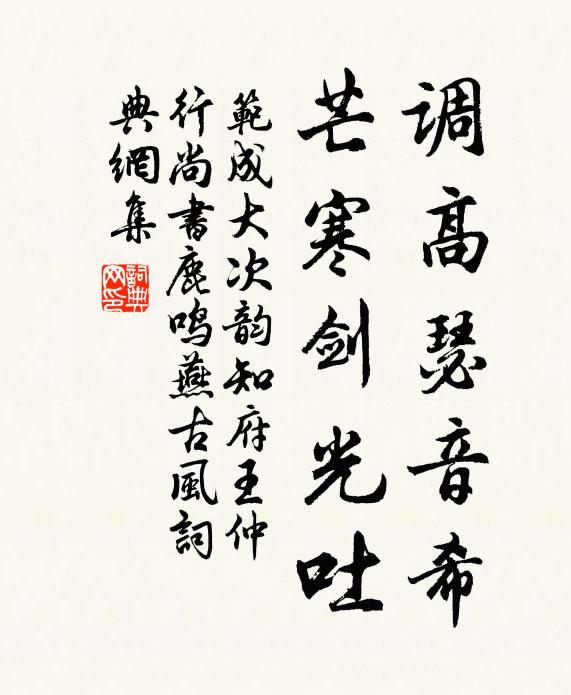 调高瑟音希
芒寒剑光吐
範成大次韵知府王仲
行尚書鹿鸣燕古風詞
典網集
詞典网印